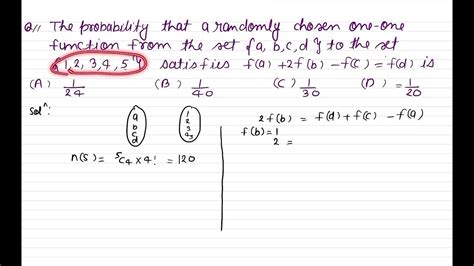 Q// The probability that a randomly chosen one-one
function from the set {a, b, c, d} to the set
{1, 2, 3, 4, 5} satisfies f(a) + 2f(b) - f(c) = f(d) is
(A) 1/24 (B) 1/40 (C) 1/30 (D) 1/20
Solⁿ:
a 1
b 2
c 3
d 4,5
n(S) = ⁵C₄ × 4! = 120
2f(b) = f(d) + f(c) - f(a)
f(b) = 1
2 =